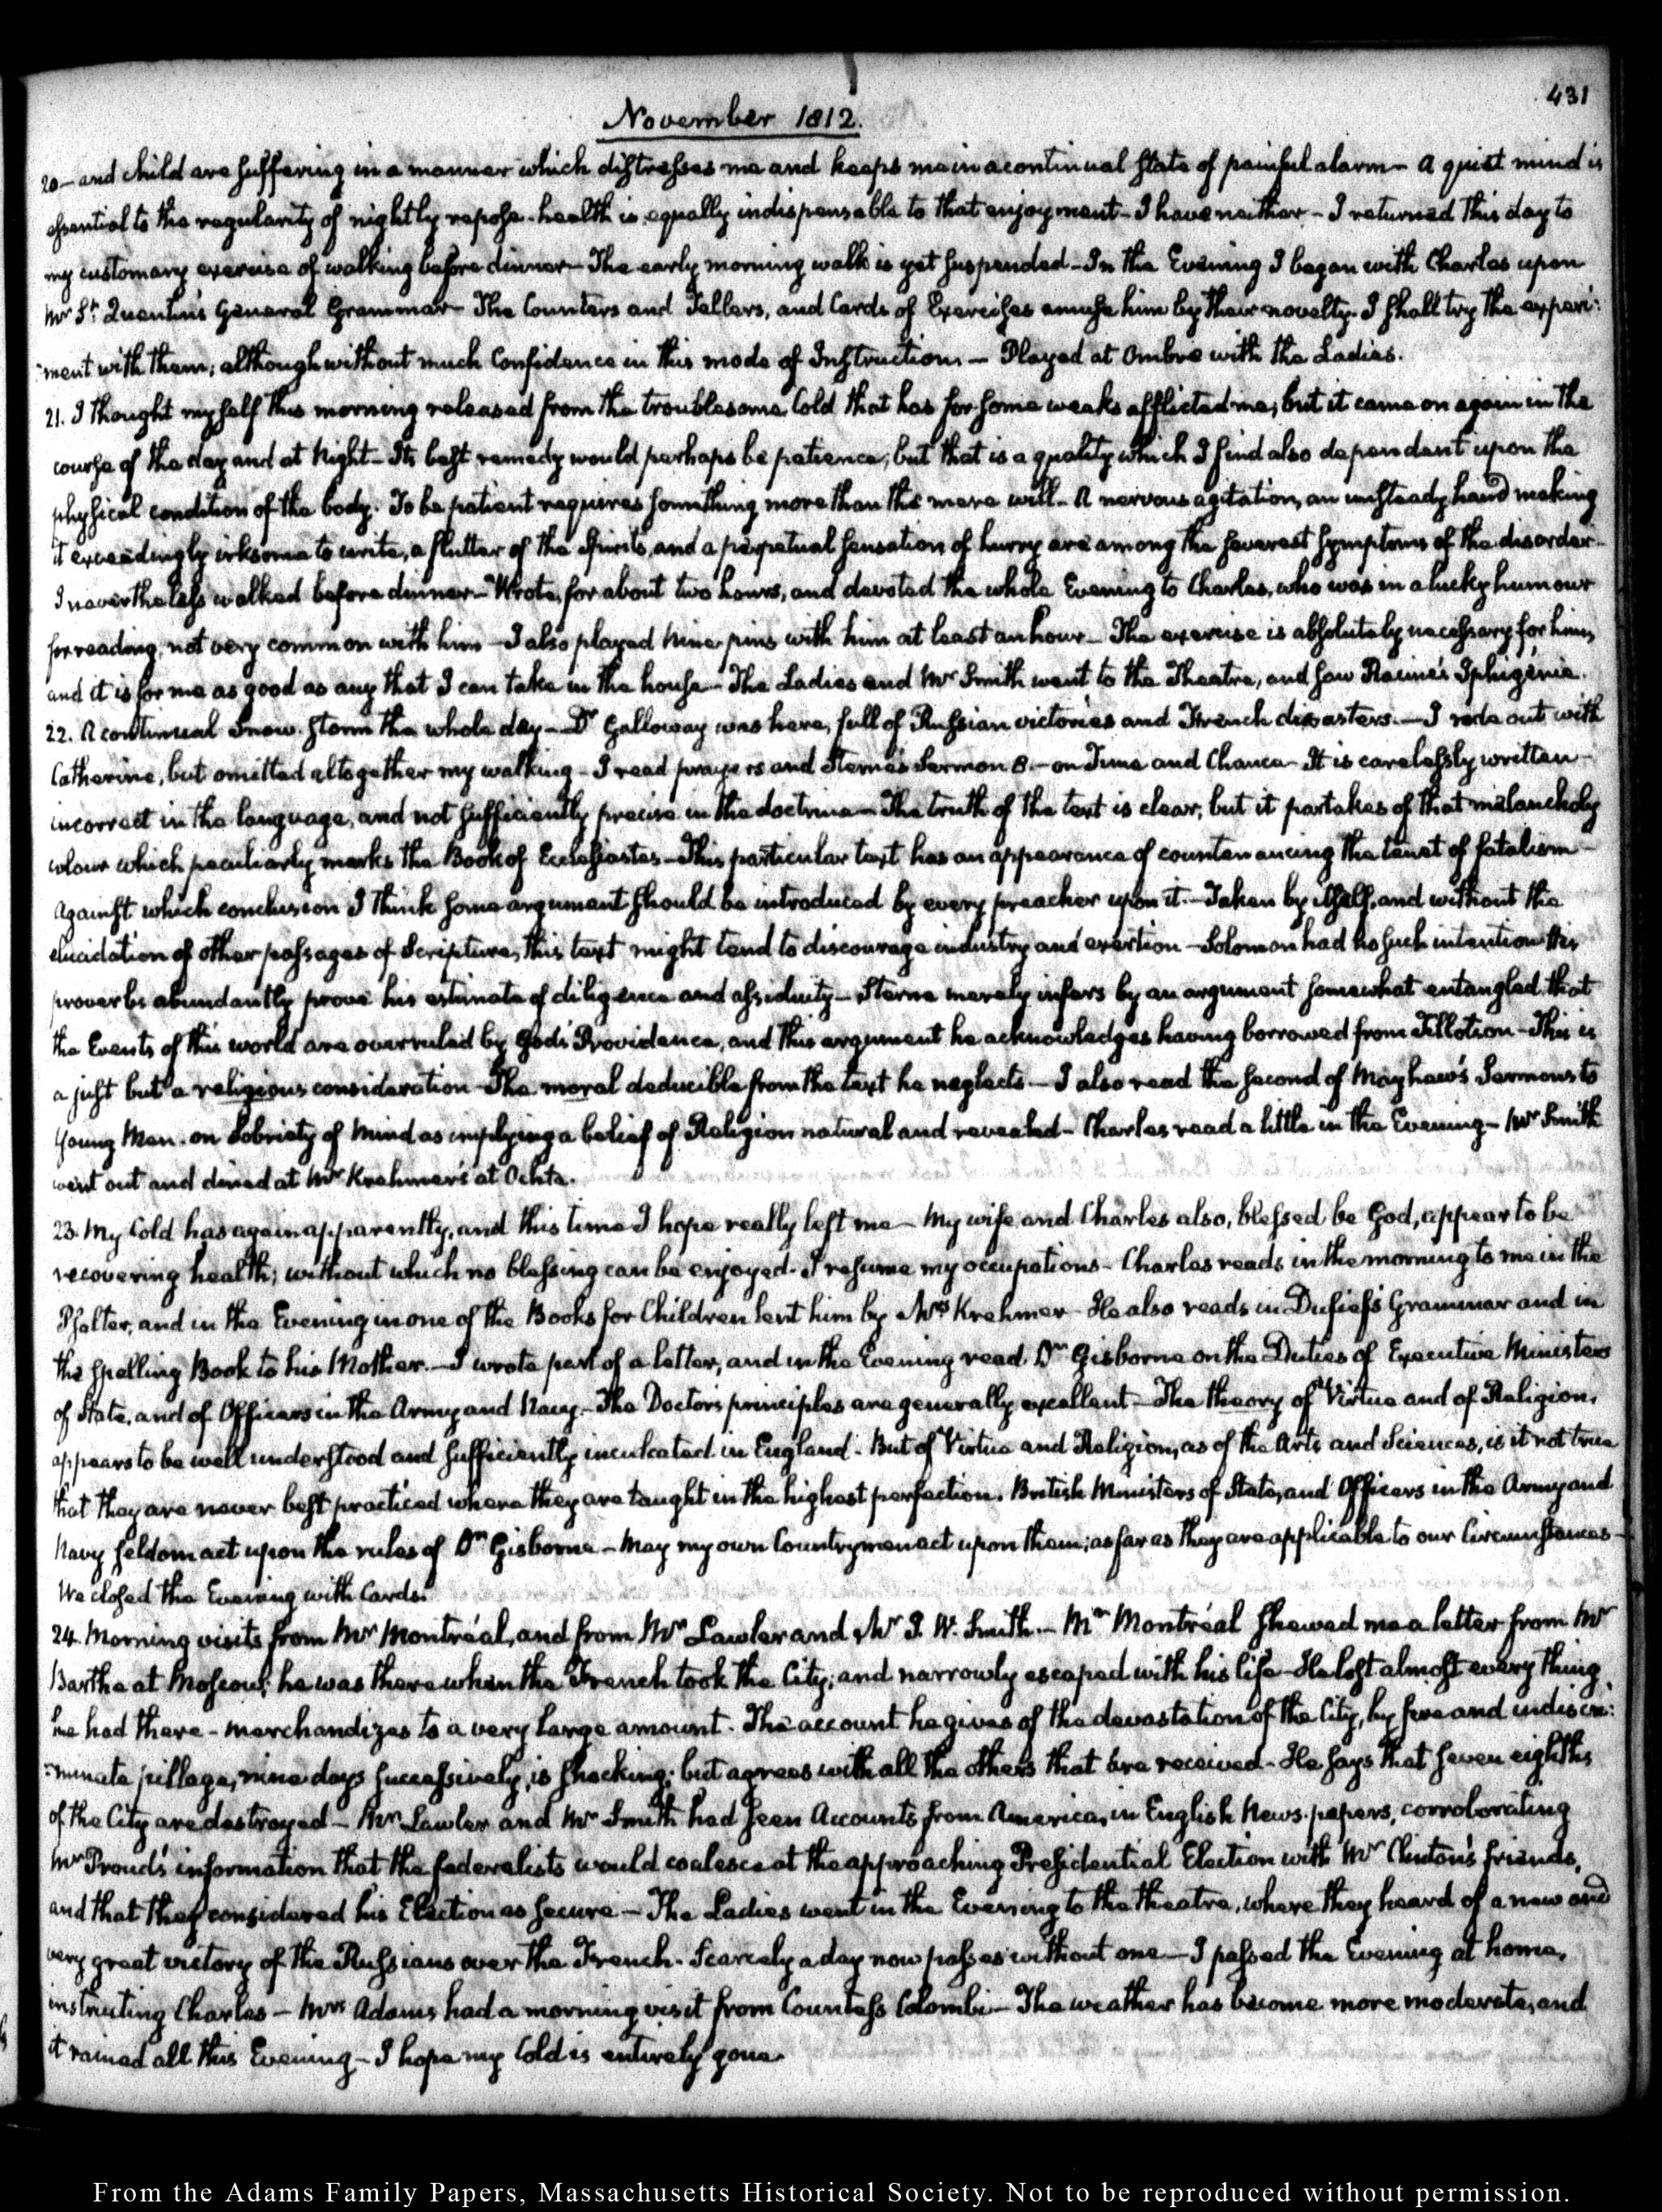 431
November 1812.
20 — and child are suffering in a manner which distresses me and keeps me in a continual state of painful alarm — A quiet mind is
essential to the regularity of nightly repose — health is equally indispensable to that enjoyment — I have neither — I returned this day to
my customary exercise of walking before dinner — The early morning walk is yet suspended — In the Evening I began with Charles upon
Mr. St. Quentin's General Grammar — The Counters and Tellers, and Cards of Exercises amuse him by their novelty. I shall try the experi:
:ment with them; although without much Confidence in this mode of Instruction. — Played at Ombre with the Ladies.
21. I thought myself this morning released from the troublesome Cold that has for some weeks afflicted me; but it came on again in the
course of the day and at Night — Its best remedy would perhaps be patience; but that is a quality which I find also dependent upon the
physical condition of the body. To be patient requires something more than the mere will — A nervous agitation, an unsteady hand making
it exceedingly irksome to write, a flutter of the Spirits, and a perpetual sensation of hurry are among the severest symptoms of the disorder —
I nevertheless walked before dinner — Wrote, for about two hours, and devoted the whole Evening to Charles, who was in a lucky humour
for reading, not very common with him — I also played Nine-pins with him at least an hour — The exercise is absolutely necessary for him,
and it is for me as good as any that I can take in the house — The Ladies and Mr Smith went to the Theatre, and saw Racine's Iphigénie.
22. A continual Snow-storm the whole day — Dr Galloway was here, full of Russian victories and French disasters. — I rode out with
Catherine, but omitted altogether my walking — I read prayers and Sterne's Sermon 8. — on Time and Chance — It is carelessly written —
incorrect in the language, and not sufficiently precise in the doctrine — The truth of the text is clear, but it partakes of that melancholy
colour which peculiarly marks the Book of Ecclesiastes — This particular text has an appearance of countenancing the tenet of fatalism —
Against which conclusion I think some argument should be introduced by every preacher upon it. — Taken by itself, and without the
elucidation of other passages of Scripture, this text might tend to discourage industry and exertion — Solomon had no such intention his
proverbs abundantly prove his estimate of diligence and assiduity — Sterne merely infers by an argument somewhat entangled that
the Events of this world are overruled by God's Providence, and this argument he acknowledges having borrowed from Tillotson — This is
a just but a religious consideration — The moral deducible from the text he neglects — I also read the second of Mayhew's Sermons to
Young Men. on Sobriety of Mind as implying a belief of Religion natural and revealed — Charles read a little in the Evening — Mr Smith
went out and dined at Mr Krehmer's at Ochta.
23. My Cold has again apparently, and this time I hope really left me — My wife and Charles also, blessed be God, appear to be
recovering health; without which no blessing can be enjoyed. I resume my occupations — Charles reads in the morning to me in the
Psalter, and in the Evening in one of the Books for Children lent him by Mrs Krehmer — He also reads in Dufief's Grammar and in
the Spelling Book to his Mother. — I wrote part of a letter, and in the Evening read Dr Gisborne on the Duties of Executive Ministers
of State, and of Officers in the Army and Navy. — The Doctor's principles are generally excellent — The theory of Virtue and of Religion,
appears to be well understood and sufficiently inculcated in England. But of Virtue and Religion, as of the Arts and Sciences, is it not true
that they are never best practiced where they are taught in the highest perfection. British Ministers of State, and Officers in the Army and
Navy seldom act upon the rules of Dr Gisborne — May my own Countrymen act upon them; as far as they are applicable to our Circumstances —
We closed the Evening with Cards.
24. Morning visits from Mr Montréal, and from Mr Lawler and Mr I. W. Smith. — Mr Montréal shewed me a letter from Mr
Barthe at Moscow; he was there when the French took the City; and narrowly escaped with his life — He lost almost every thing
he had there — merchandizes to a very large amount. The account he gives of the devastation of the City, by fire and indiscri:
:minate pillage, nine days successively, is shocking; but agrees with all the others that are received — He says that seven eighths
of the City are destroyed — Mr Lawler and Mr Smith had seen Accounts from America, in English News-papers, corroborating
Mr Proud's information that the federalists would coalesce at the approaching Presidential Election with Mr Clinton's friends,
and that they considered his Election as secure — The Ladies went in the Evening to the theatre, where they heard of a new and
very great victory of the Russians over the French. Scarcely a day now passes without one — I passed the Evening at home,
instructing Charles — Mrs Adams had a morning visit from Countess Colombi — The weather has become more moderate, and
it rained all this Evening — I hope my Cold is entirely gone.
From the Adams Family Papers, Massachusetts Historical Society. Not to be reproduced without permission.